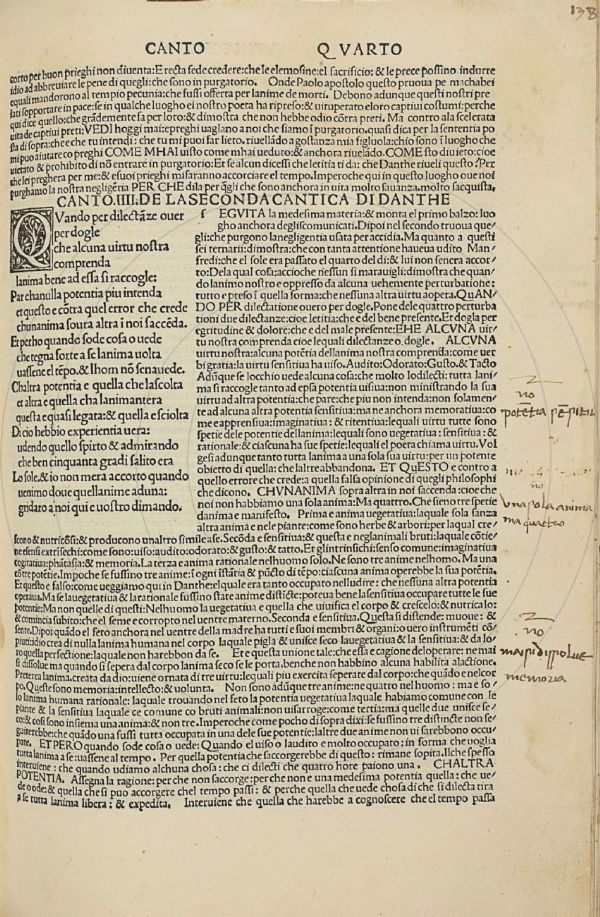 138
CANTO QVARTO
corto per buon prieghi non diuenta: E recta sede credere: che le elemosine: el sacrificio: & le prece possino indurre
idio ad abbreuiare le pene di quegli: che sono in purgatorio. Onde Paolo apostolo questo pruoua pe machabei
equali mandorono al tempio pecunia: che fussi offerta per lanime de morti. Debono adunque questi nostri pre
lati sopportare in pace: se in qualche luogho el nostro poeta ha ripreso: & uituperato eloro captiui costumi: perche
qui dice quello: che grādemente sa per loro: & dimostra che non hebbe odio cōtra preti. Ma contro ala scelerata
uita de captiui preti: VEDI hoggi mai: e prieghi uaglano a noi che siamo ī purgatorio. quasi dica per la sententia po
sta di sopra: che e che tu intendi: che tu mi puoi far lieto. riuelādo a gostanza mia figluola: chio sono ī luogho che
mi puo aiutare co preghi COME MHAI uisto come mhai ueduto: & anchora riuelādo. COME sto diuieto: cioe
uietato & prohibito di nō entrare in purgatorio: Et se alcun dicessi che letitia ti da: che Danthe riueli questo? Per
che lei preghera per me: & e suoi prieghi mi faranno accorciare el tempo. Imperoche qui in questo luogho oue noi
purghamo la nostra negligētia PER CHE di la per q̄gli che sono anchora in uita molto sauanza. molto sacquista.
CANTO. IIII. DE LA SECONDA CANTICA DI DANTHE
QVando per dilectāze ouer
per dogle
che alcuna uirtu nostra
comprenda
lanima bene ad essa si raccogle:
Par chanulla potentia piu intenda
et questo e cōtra quel error che crede
chunanima soura altra ī noi saccēda.
Et perho quando sode cosa o uede
che tegna forte a se lanima uolta
uassene el tēpo. & lhom nō senauede.
Chaltra potentia e quella che lascolta
et altra e quella cha lanima intera
questa e quasi legata: & quella e sciolta
Di cio hebbio experientia uera:
udendo quello spirto & admirando
che ben cinquanta gradi salito era
Lo sole. & io non mera accorto quando
uenimo doue quellanime aduna:
gridaro a noi qui e uostro dimando.
sEGVITA la medesima materia: & monta el primo balzo: luo
gho anchora degli scomunicati. Dipoi nel secondo truoua que
gli: che purgono la negligentia usata per accidia. Ma quanto a questi
sei ternarii: dimostra: che con tanta attentione haueua udito Man
fredi: che el sole era passato el quarto del di: & lui non senera accor
to: Dela qual cosa: accioche niessun si marauigli: dimostra che quan
do lanimo nostro e oppresso da alcuna uehemente perturbatione:
tutto e preso ī quella forma: che nessuna altra uirtu adopera. QuAN
DO PER dilectatione ouer per dogle. Pone dele quattro perturba
tioni due dilectanze: cioe letitia: che e del bene presente. Et dogla per
egritudine & dolore: che e del male presente: EHE ALCVNA uir
tu nostra comprenda cioe lequali dilectanze o. dogle. ALCVNA
uirtu nostra: alcuna potētia dellanima nostra comprenda: come uer
bi gratia: la uirtu sensitiua ha uiso. Audito: Odorato: Gusto: & Tacto
Adūque se locchio uede alcuna cosa: che molto lodilecti: tutta lani
ma si raccogle tanto ad epsa potentia uisiua: non ministrando la sua
uirtu ad altra potentia: che pare: che piu non intenda: non solamen
te ad alcuna altra potentia sensitiua: ma ne anchora memoratiua: co
me apprensiua: imaginatiua: & ritentiua: lequali uirtu tutte sono
spetie dele potentie dellanima: lequali sono uegetatiua: sensitiua: &
rationale: & ciascuna ha sue spetie: lequali el poeta chiama uirtu. Vol
gesi adunque tanto tutta lanima a una sola sua uirtu: per un potente
obiecto di quella: che laltre abbandona. ET QuESTO e contro a
quello errore che crede: a quella falsa opinione di quegli philosophi
che dicono. CHVNANIMA sopra altra in noi saccenda: cioe che
noi non habbiamo una sola anima: Ma quattro. Che sieno tre spetie
danima e manifesto. Prima e anima uegetatiua: laquale sola sanza
altra anima e nele piante: come sono herbe & arbori: per laqual cre
scono & nutricōsi: & producono unaltro simile a se. Secōda e sensitiua: & questa e neglanimali bruti: laquale cōtie
ne sensi extrisechi: come sono: uiso: audito: odorato: & gusto: & tatto. Et gli intrinsichi: senso comune: imaginatiua
cogitatiua: phātasia: & memoria. La terza e anima rationale nelhuomo solo. Ne sono tre anime nelhomo. Ma una
cō tre potētie. Impoche se fussino tre anime: ī ogni istātia & pūcto di tēpo: ciascuna anima operebbe la sua potētia.
Et questo e falso: come ueggiamo qui in Danthe: elquale era tanto occupato nelludire: che nessuna altra potentia
operaua. Ma se la uegetatiua & la rationale fussino state anime distincte: poteua bene la sensitiua occupare tutte le sue
potentie: Ma non quelle di questi: Nelhuomo la uegetatiua e quella che uiuifica el corpo & crescelo: & nutrica lo:
& comincia subito: che el seme e corropto nel uentre materno. Seconda e sensitiua. Questa si distende: muoue: &
sente. Dipoi quādo el feto anchora nel uentre della madre ha tutti e suoi membri & organi: o uero instrumēti cō
piuti: idio crea di nulla lanima rationale nel corpo: laquale infusa si seco lauegetatiua & la sensitiua: & da lo
ro quella perfectione: laquale non harebbon da se. Et e questa unione tale: che essa e cagione del operare: ne mai
si dissolue ma quando si sepera dal corpo lanima seco se le porta. benche non habbino alcuna habilita alactione.
Preterea lanima. creata da dio: uiene ornata di tre uirtu: lequali piu exercita seperate dal corpo: che quādo e nelcor
po. Queste sono memoria: intellecto: & uolunta. Non sono adūque tre anime: ne quatro nel huomo: ma e so
lo lanima humana rationale: laquale trouando nel feto la potentia uegetatiua laquale habbiamo comune con le
piante & la sensitiua laquale ce comune co bruti animali: non uisar roge: come tertia: ma quelle due unisce se
co: & cosi sono insieme una anima: & non tre. Imperoche come pocho di sopra dixi: se fussino tre distincte non se
guiterebbe: che quādo una fussi tutta occupata in una dele sue potentie: laltre due anime non ui sarebbono occu
pate. ET PERO quando sode cosa o uede: Quando el uiso o laudito e molto occupato: in forma che uoglia
tutta lanima a se: uassene al tempo. Per quella potentia che saccorgerebbe di questo: rimane sopita. Ilche spesso
interuiene: che quando udiamo alchuna chosa: che ci dilecti che quatro hore paiono una. CHALTRA
POTENTIA. Assegna la ragione: per che non saccorge: per che non e una medesima potentia quella: che ue
de o ode: & quella che si puo accorgere chel tempo passi: & perche quella che uede chosa di che si dilecta tira
a se tutta lanima libera: & expedita. Interuiene che quella che harebbe a cognoscere che el tempo passa
no
potētia
no
una sola anima
ma quattro
no
ma si dissolue
memoria